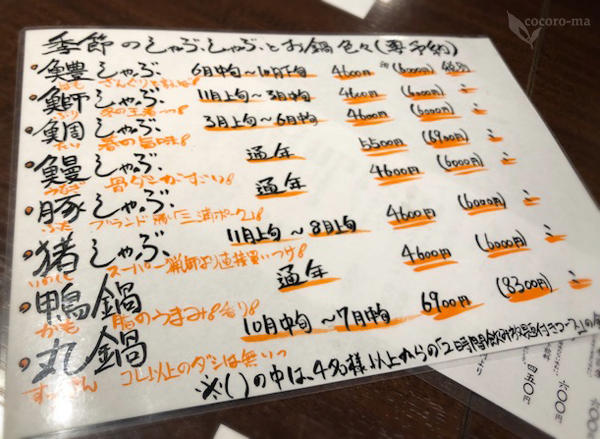 cocoro-ma
季節のしゃぶしゃぶとお鍋色々(要予約)
・鱧しゃぶ 6月中旬～10月下旬 4600円 (6000円) 税別
はも
・鰤しゃぶ 11月上旬～3月中旬 4600円 (6000円) 〃
ぶり 冬の王者っっ!
・鯛しゃぶ 3月上旬～6月中旬 4600円 (6000円) 〃
たい 春の旨味!
・鰻しゃぶ 通年 5500円 (6900円) 〃
うなぎ 骨ダシがすごい!
・豚しゃぶ 通年 4600円 (6000円) 〃
ぶた ブランド豚「三浦ポーク」!
・猪しゃぶ 11月上旬～8月上旬 4600円 (6000円) 〃
いのしし スーパー猟師より直接買いつけ!
・鴨鍋 通年 4600円 (6000円) 〃
かも 脂のうまみ!香り!
・丸鍋 10月中旬～7月中旬 6900円 (8300円) 〃
すっぽん コレ以上のダシは無いっ
※( )の中は、4名様以上からの「2時間飲み放題付きコース」の